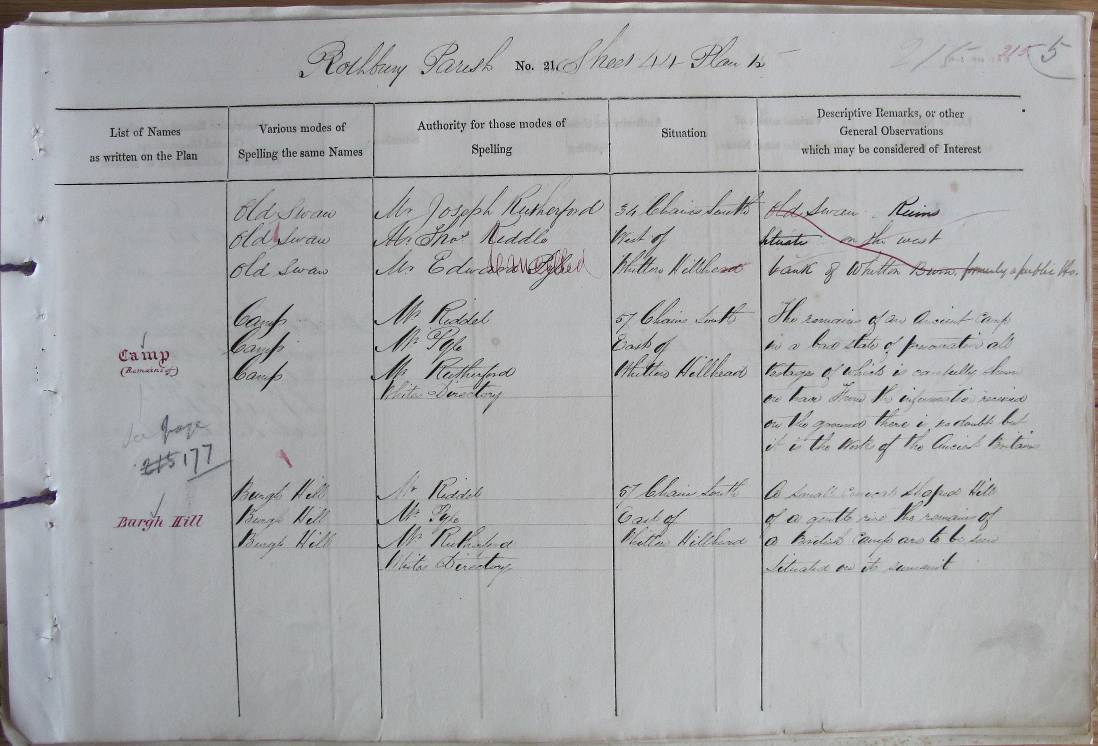 Rothbury Parish No. 21. Sheet 44 Plan 15
215 5
List of Names
as written on the Plan
Various modes of
Spelling the same Names
Authority for those modes of
Spelling
Situation
Descriptive Remarks, or other
General Observations
which may be considered of Interest
Old Swan Mr Joseph Rutherford 34 Chains South Old Swan Ruins
Old Swan Mr Thos Riddle West of situate on the west
Old Swan Mr Edward Whitton Hillhead bank of Whitton Burn, formerly a public Ho.
Camp Mr Riddel 57 Chains South The remains of an Ancient Camp
Camp Mr Pyle East of in a bad state of preservation all
Camp
(Remains of)
Camp Mr Rutherford Whitton Hillhead vestages of which is carefully shewn
Whites Directory on trace From the information received
on the ground there is no doubt but
it is the work of the Ancient Britain
See page
215 177
Burgh Hill Mr Riddel 57 Chains South A small conical shaped Hill
Burgh Hill Burgh Hill Mr Pyle East of of a gentle rise the remains of
Burgh Hill Mr Rutherford Whitton Hillhead a British camp are to be seen
Whites Directory situated on its summit